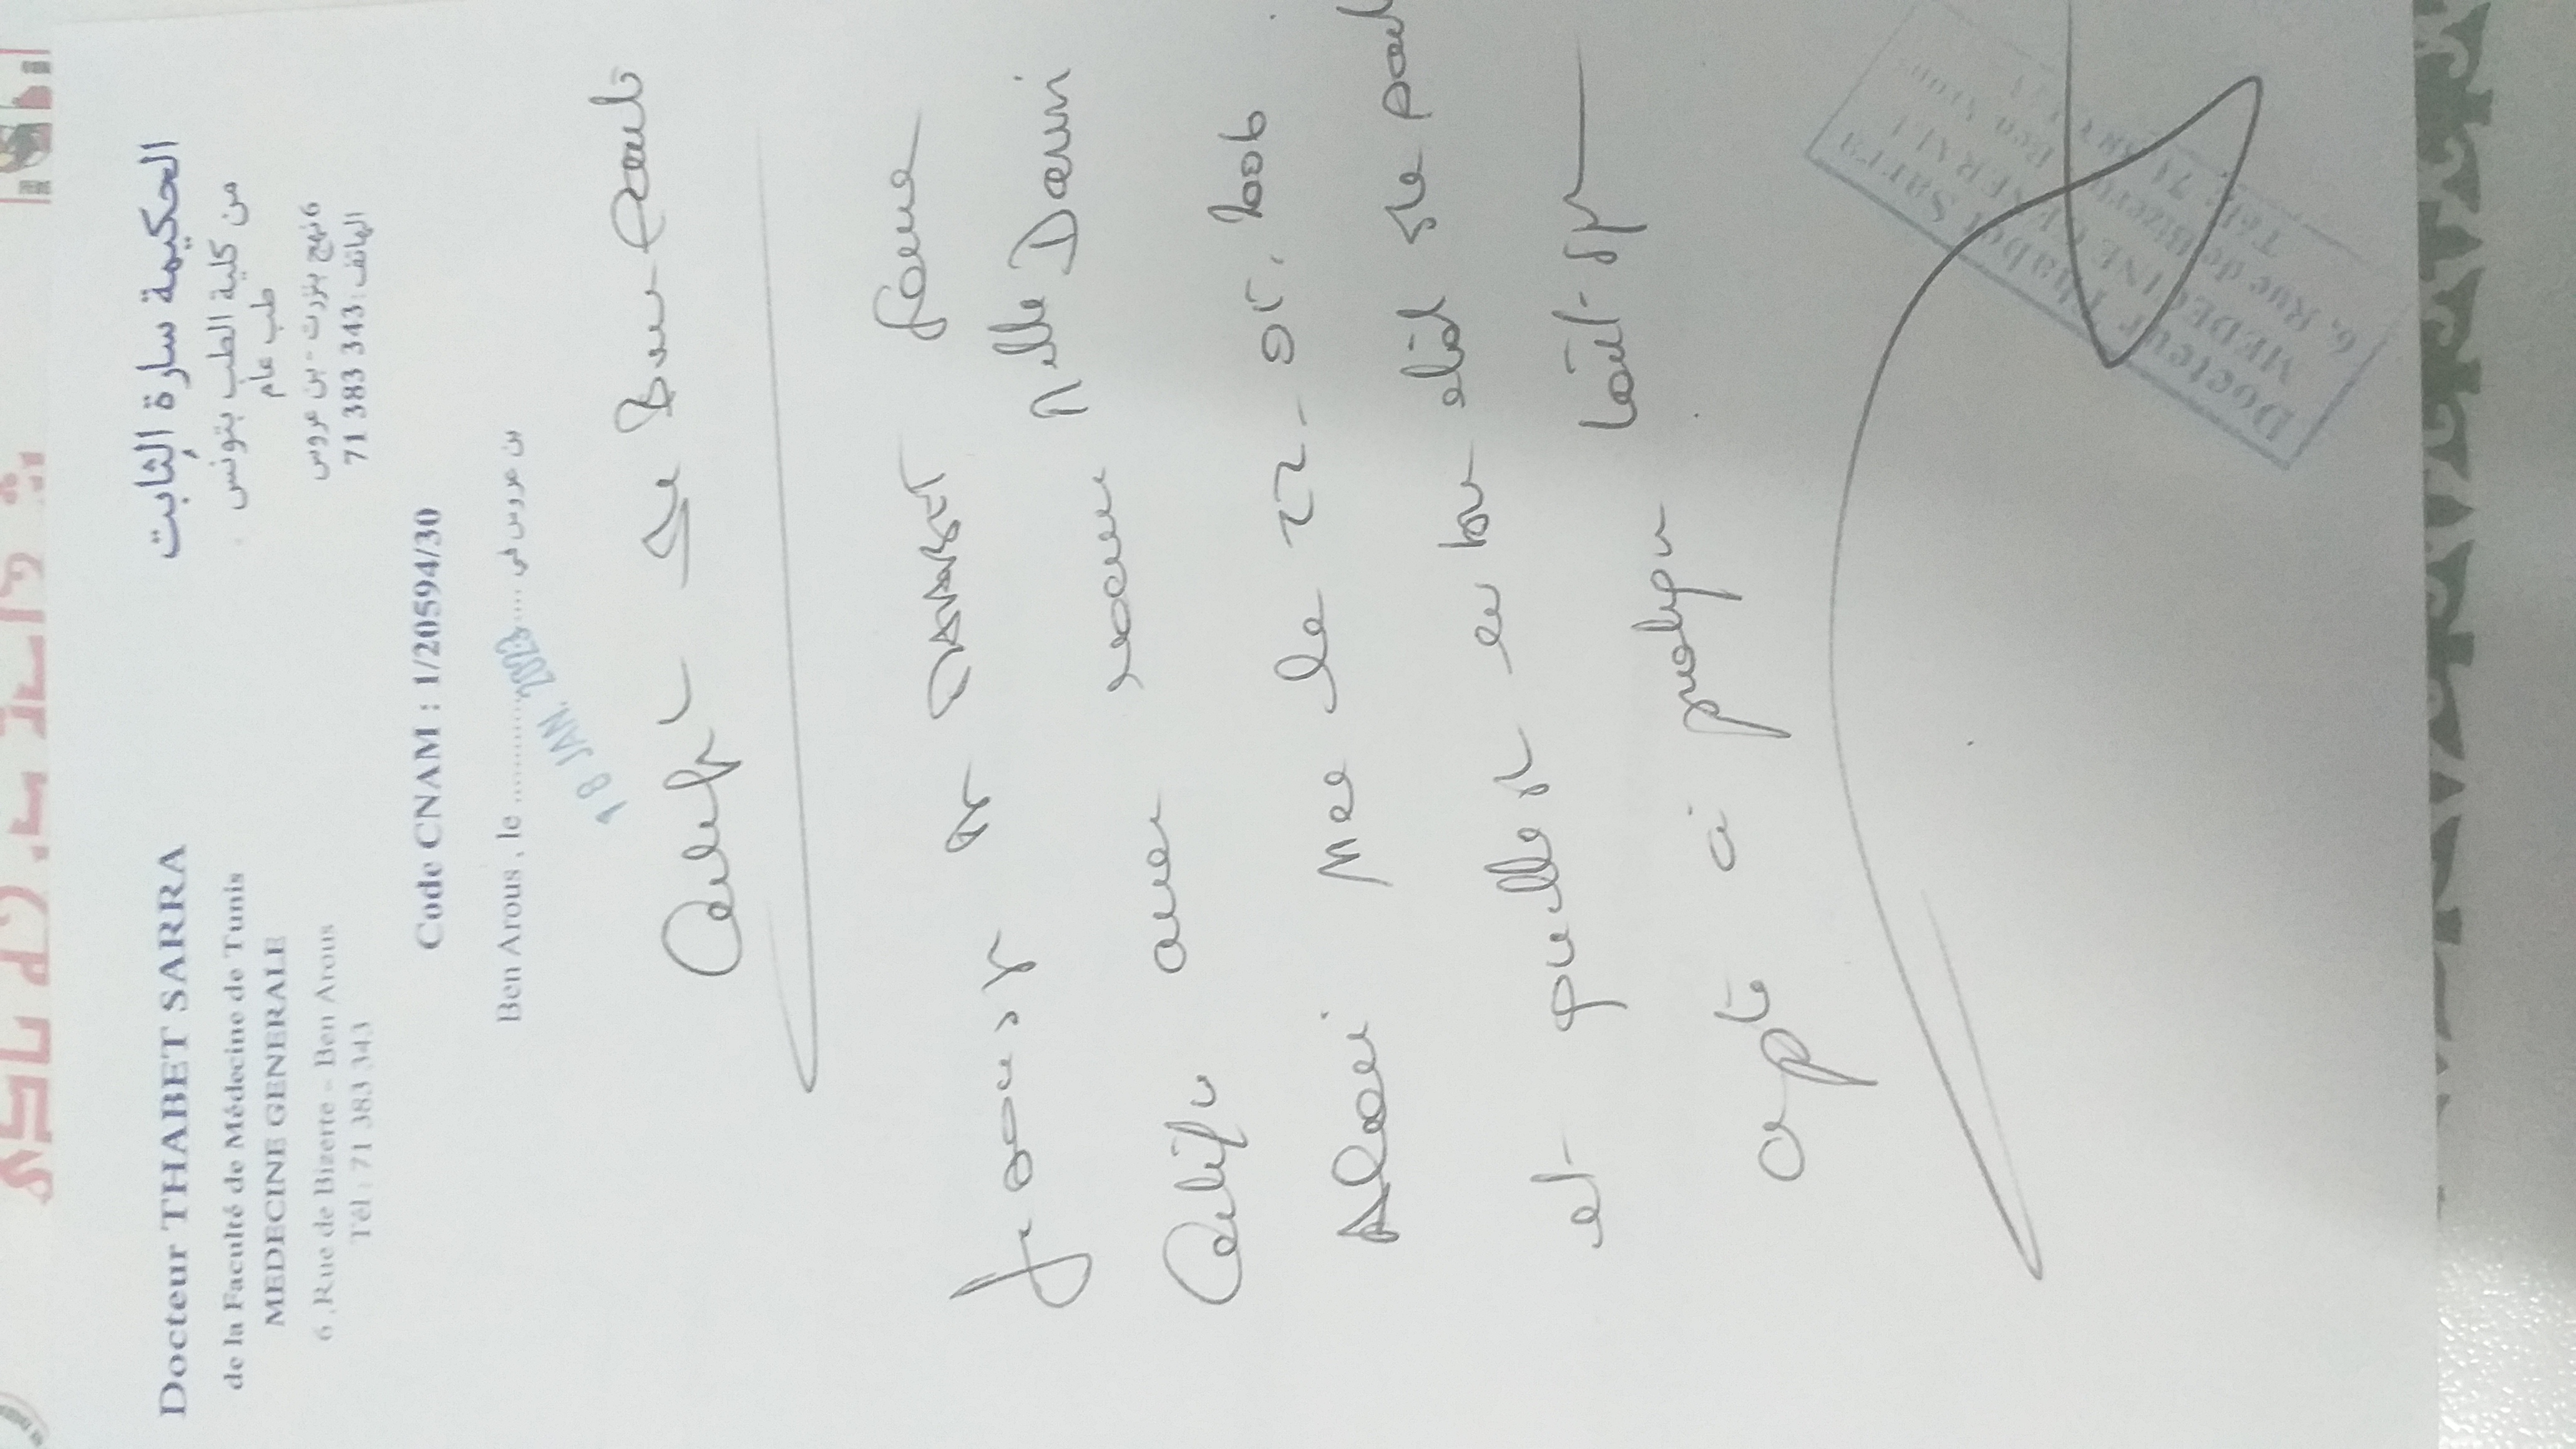 Docteur THABET SARRA
de la Faculté de Médecine de Tunis
MEDECINE GENERALE
6 ,Rue de Bizerte - Ben Arous
Tél : 71 383 343
الحكيمة سارة الثابت
من كلية الطب بتونس
طب عام
6 نهج بنزرت - بن عروس
الهاتف : 343 383 71
Code CNAM : 1/20594/30
Ben Arous , le ............ بن عروس في
18 JAN. 2023
Certificat de Bonne Santé
Je soussigné Dr THABET Sarra
Certifie avoir examiné Melle Daemi
Née le 22-05-2006
et qu'elle est en bon état de santé
apte à pratiquer tout sport
Docteur Thabet Sarra
MEDECINE GENERALE
6, Rue de Bizerte Ben Arous